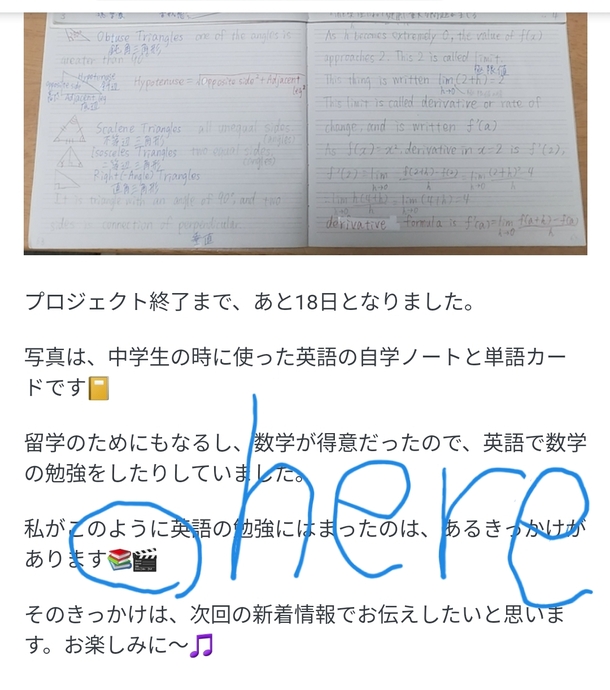 Obtuse Triangles one of the angles is
鈍角三角形
greater than 90°
Hypotenuse
Hypotenuse = √Opposite side² + Adjacent
Scalene Triangles all unequal sides
不等辺三角形 (angles)
Isosceles Triangles two equal sides
二等辺三角形 (angles)
Right(-Angle) Triangles
直角三角形
It is triangle with an angle of 90° and two
sides connection of perpendicular.
垂直
As h becomes extremely 0, the value of f(x)
approaches 2. This 2 is called limit.
極限値
This thing is written lim(2+h)=2
h→0
This limit is called derivative or rate of
change, and is written f'(a)
As f(x)=x², derivative in x=2 is f'(2),
f'(2)=lim f(2+h)-f(2)/h = lim (2+h)²-4/h
= lim h(4+h)/h = lim(4+h)=4
derivative formula is f'(a)=lim f(a+h)-f(a)/h
プロジェクト終了まで、あと18日となりました。
写真は、中学生の時に使った英語の自学ノートと単語カー
ドです📔
留学のためにもなるし、数学が得意だったので、英語で数学
の勉強をしたりしていました。
私がこのように英語の勉強にはまったのは、あるきっかけが
あります📚🎬
here
そのきっかけは、次回の新着情報でお伝えしたいと思いま
す。お楽しみに〜🎵